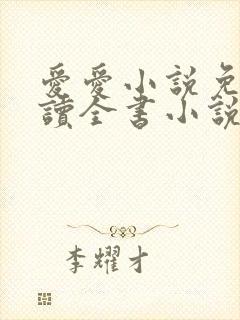 愛愛小說免
讀全書小說
李耀才